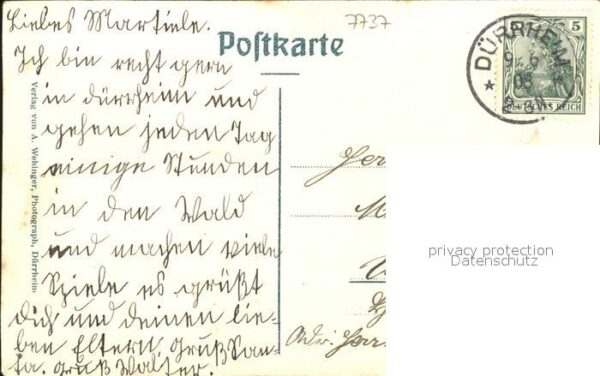 Liebes Martiele.
Ich bin recht gern
in dürrheim und
gehen jeden Tag
einige Stunden
in den Wald
und machen viele
Spiele es grüßt
dich und deinen lie-
ben Eltern, Gruß San-
ta. Gruß Walter.
7737
Postkarte
Verlag von A. Wehinger, Photograph, Dürrheim
DÜRRHEIM
5
DEUTSCHES REICH
Herr
Adr. Herr
privacy protection
Datenschutz